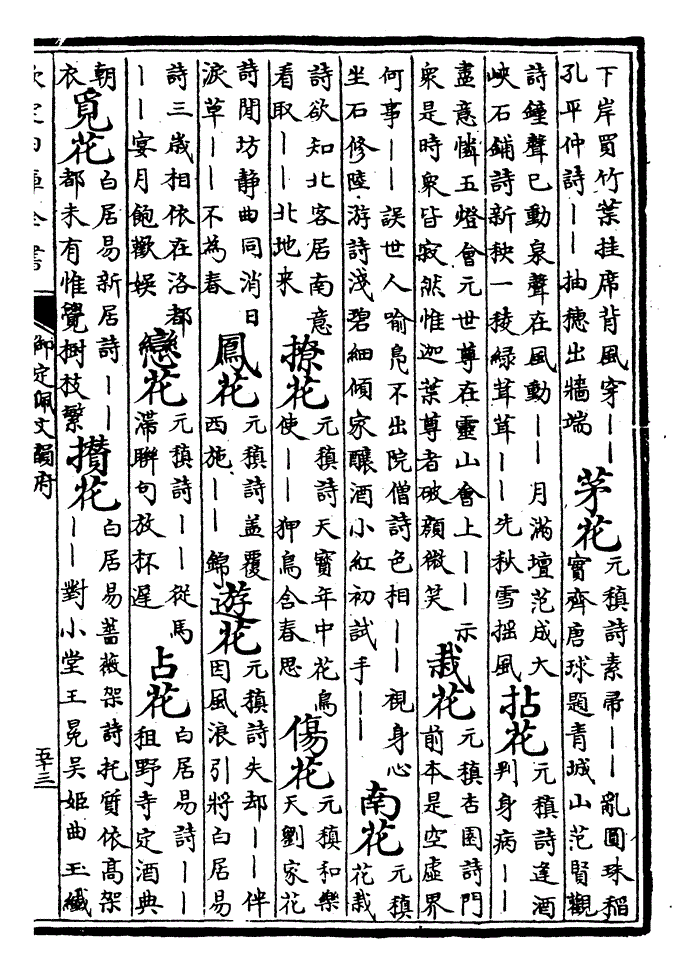 下岸買竹葉挂席背風穿丨丨
孔平仲詩丨丨抽穗出牆端
茅花
元稹詩素帚丨丨亂圓珠稲
實齊唐球題青城山范賢觀
詩鐘聲已動泉聲在風動丨丨月滿壇范成大
峽石鋪詩新秧一稜緑茸茸丨丨先秋雪揺風
拈花
元稹詩逢酒
判身病丨丨
盡意憐五燈會元世尊在靈山會上丨丨示
衆是時衆皆寂然惟迦葉尊者破顔微笑
栽花
元稹杏園詩門
前本是空虛界
何事丨丨誤世人喻鳧不出院僧詩色相丨丨視身心
坐石修陸游詩淺碧細傾家釀酒小紅初試手丨丨
南花
元稹
花栽
詩欲知北客居南意
看取丨丨北地来
撩花
元稹詩天寳年中花鳥
使丨丨狎鳥含春思
傷花
元稹和樂
天劉家花
詩閒坊静曲同消日
淚草丨丨不為春
鳳花
元稹詩葢覆
西施丨丨錦
遊花
元稹詩失却丨丨伴
因風浪引將白居易
詩三歳相依在洛都
丨丨宴月飽歡娱
戀花
元稹詩丨丨從馬
滯聯句放杯遲
占花
白居易詩丨丨
租野寺定酒典
朝
衣
覓花
白居易新居詩丨丨
都未有惟覺樹枝繁
攢花
白居易薔薇架詩托質依高架
丨丨對小堂王冕吳姬曲玉纖
欽定四庫全書
御定佩文韻府
五十三